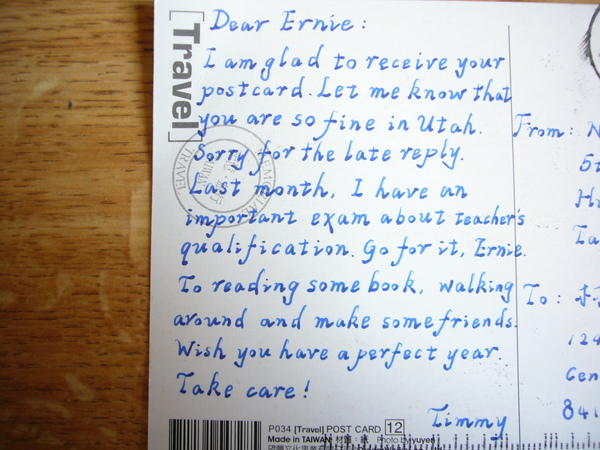 [Travel]
Dear Ernie:
I am glad to receive your
postcard. Let me know that
you are so fine in Utah.
Sorry for the late reply.
Last month, I have an
important exam about teacher's
qualification. Go for it, Ernie.
To reading some book, walking
around and make some friends.
Wish you have a perfect year.
Take care!
Timmy
From:
To:
P034 [Travel] POST CARD 12
Made in TAIWAN 材質:紙 Photo by
TRAVEL